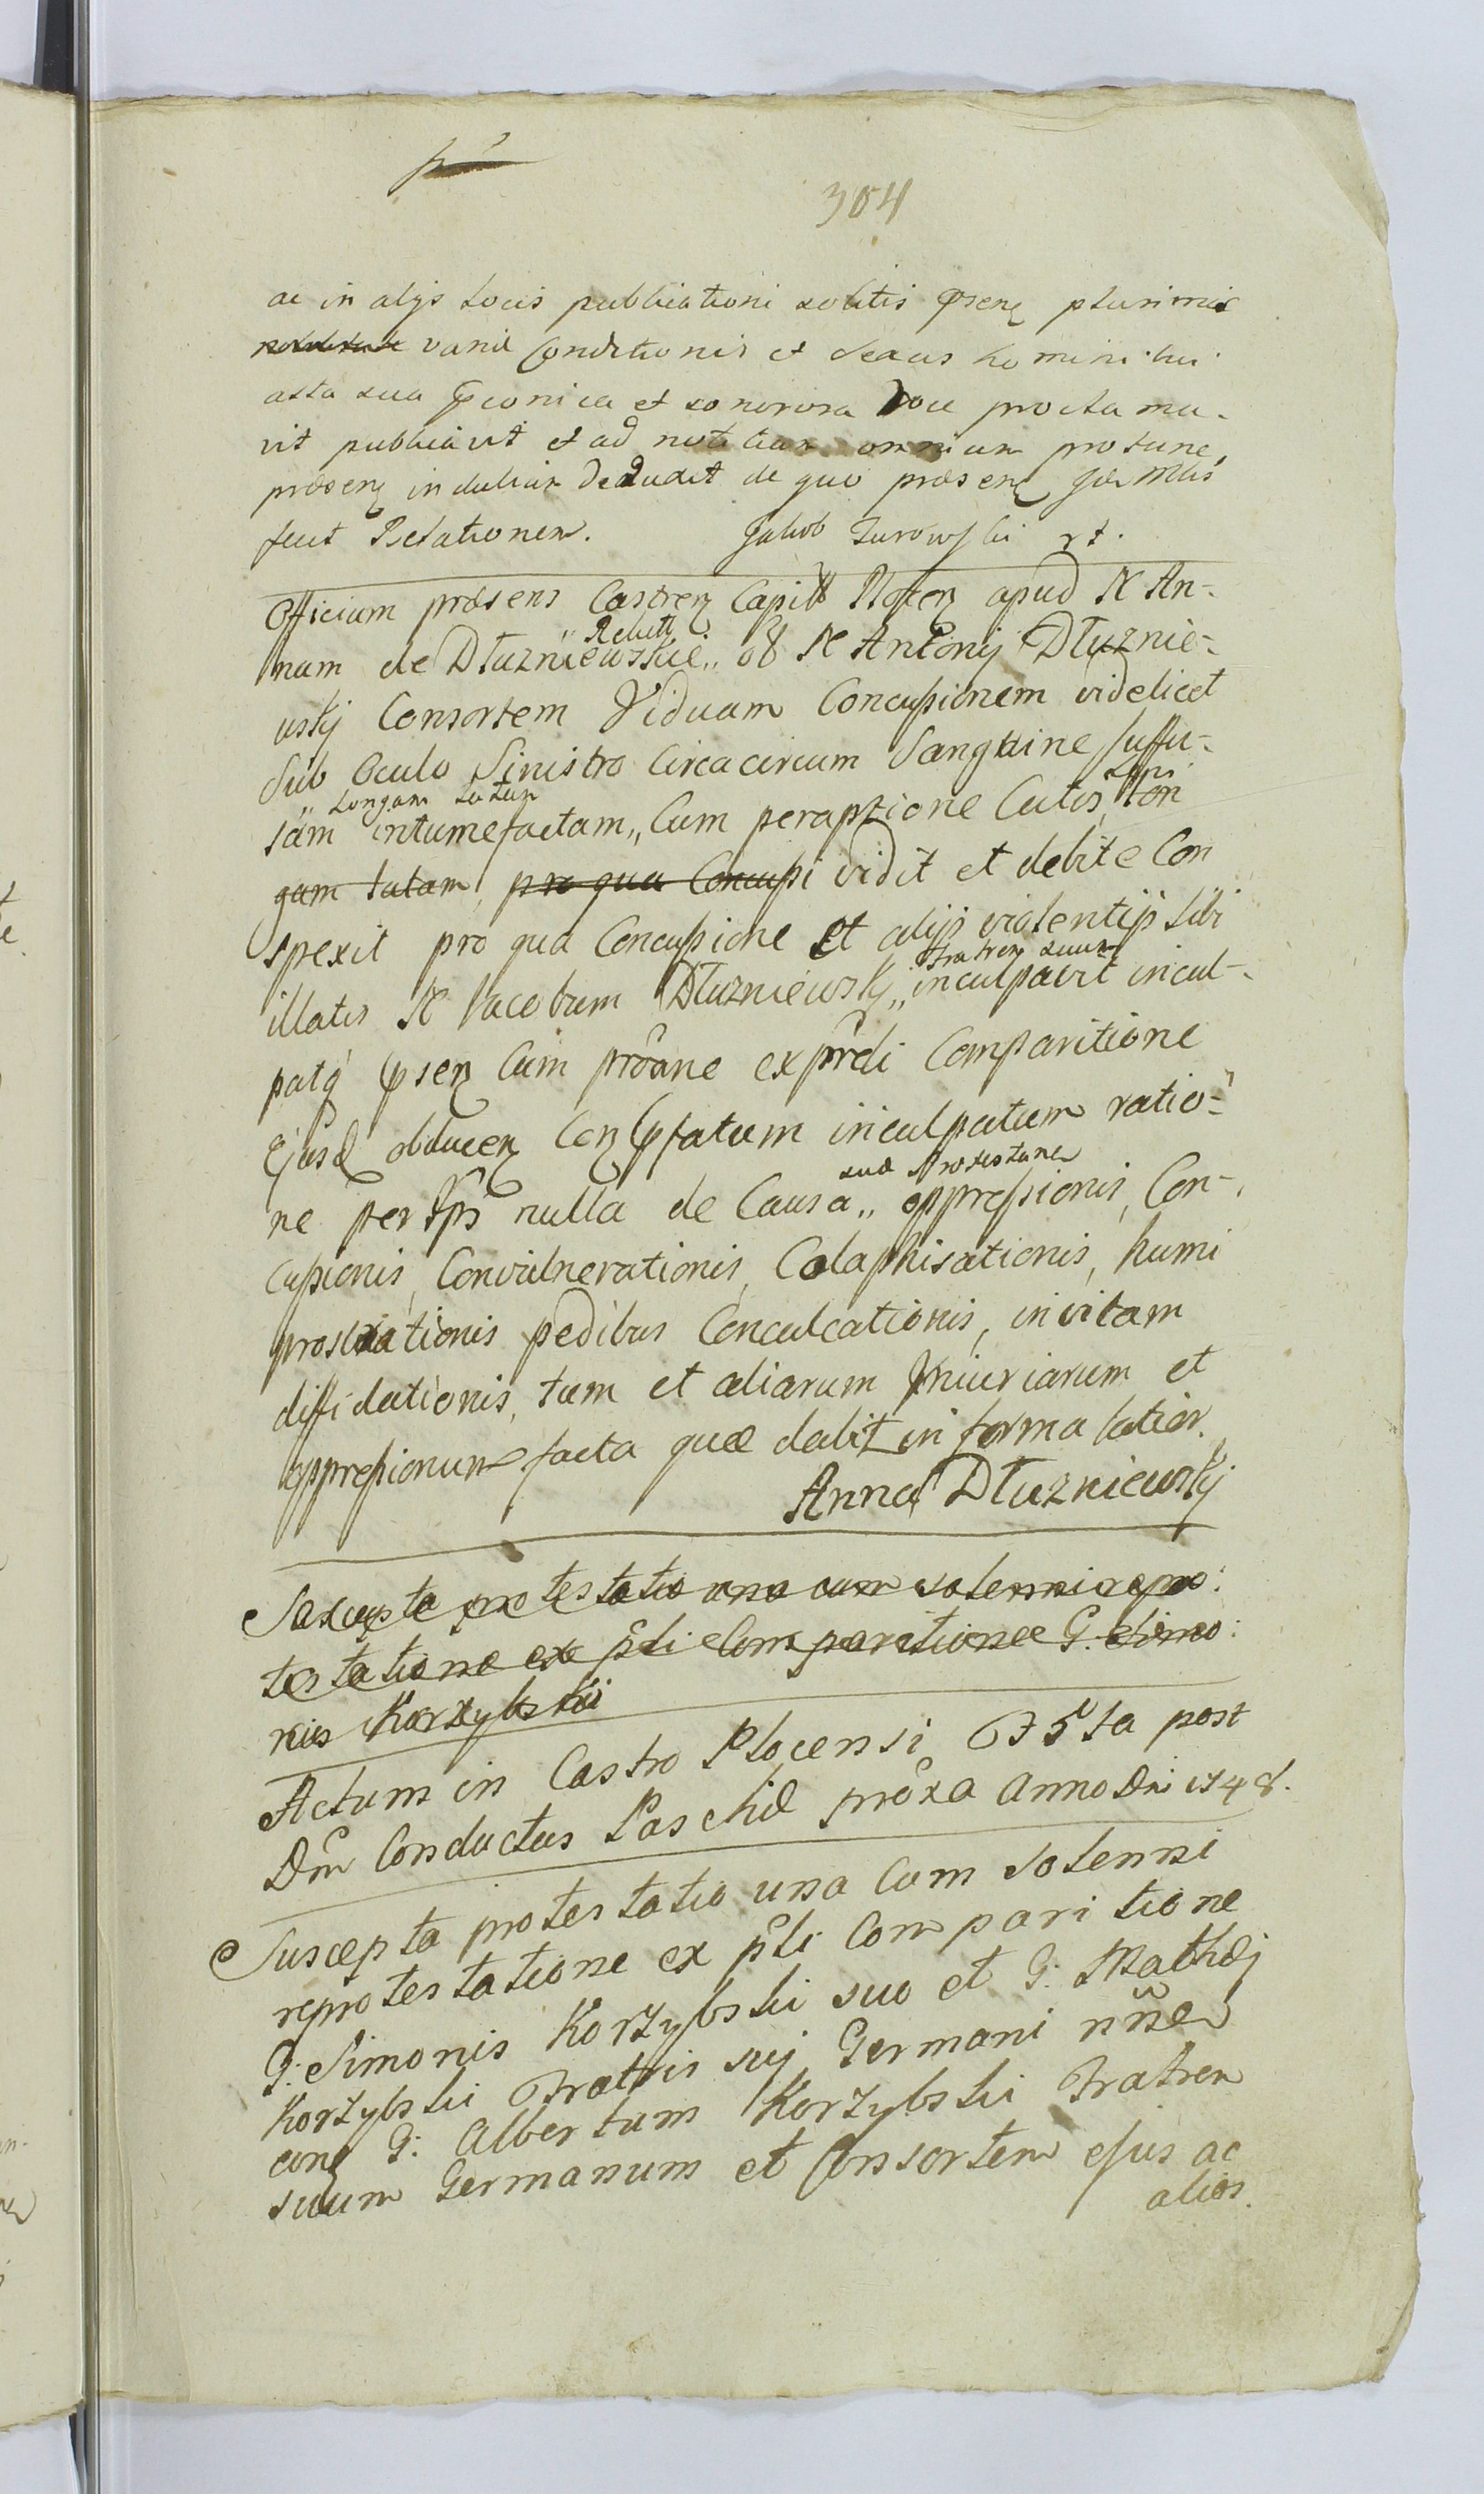 304
ac in alijs locis publicationi solitis psens plurimis
variæ Conditionis et sexus hominibus
alta sua et sonorosa voce proclama-
vit publicavit et ad notitiam omnium protunc
præsen induliar deduxit de quo præsens
fecit Relationem. Jakob Zurowski
Officium præsens Castren Capitt Plocen apud N An-
nam de Dłuzniewskie „ Relictt „ olim N Antonij Dłuznie-
wskj Consortem Viduam Concussionem videlicet
Sub Oculo Sinistro Circacircum Sangvine suffu-
sam intumefactam „ Longam latam „ Cum peraptione Cutis, lon
gam latam, pro qua Concussi vidit et debite Con
spexit pro qua Concussione et alijs violentijs sibi
illatis N Jacobum Dłuzniewskj „ fratrem suum inculpavit incul-
patq psen Cum proane ex prdi Comparitione
Ejusd obducen Con Pfatum inculpatum ratio-
ne nulla de Causa „ sua Protestane oppressionis, Con-
cussionis, Convulnerationis, Colaphisationis, humi
prostrationis pedibus Conculcationis, in vitam
diffidationis, tum et aliarum Iniuriarum et
oppressionum facta quæ dabit in forma latior.
Anna Dłuzniewskj
Suscepta protestatio una cum solenni repro:
testatione ex pli Comparitione G. Simo:
nis Korzybski
Actum in Castro Plocensi F 5ta post
Dm Conductus Paschæ proxa Anno Dni 1748.
Suscepta protestatio una Cum Solenni
reprotestatione ex pli Comparitione
G: Simonis Korzybski suo et G: Mathæj
Korzybski Fratris sui Germani nñe
G: Albertum Korzybski Fratrem
suum Germanum et Consortem ejus ac
alios.